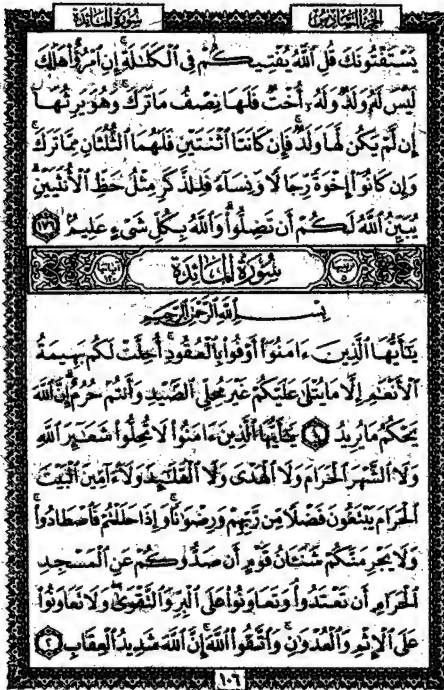 سُورَةُ المَائدَة الجُزءُ السَّادِسُ
يَسۡتَفۡتُونَكَ قُلِ ٱللَّهُ يُفۡتِيكُمۡ فِي ٱلۡكَلَٰلَةِۚ إِنِ ٱمۡرُؤٌاْ هَلَكَ
لَيۡسَ لَهُۥ وَلَدٞ وَلَهُۥٓ أُخۡتٞ فَلَهَا نِصۡفُ مَا تَرَكَۚ وَهُوَ يَرِثُهَآ
إِن لَّمۡ يَكُن لَّهَا وَلَدٞۚ فَإِن كَانَتَا ٱثۡنَتَيۡنِ فَلَهُمَا ٱلثُّلُثَانِ مِمَّا تَرَكَۚ
وَإِن كَانُوٓاْ إِخۡوَةٗ رِّجَالٗا وَنِسَآءٗ فَلِلذَّكَرِ مِثۡلُ حَظِّ ٱلۡأُنثَيَيۡنِۗ
يُبَيِّنُ ٱللَّهُ لَكُمۡ أَن تَضِلُّواْۗ وَٱللَّهُ بِكُلِّ شَيۡءٍ عَلِيمُۢ ١٧٦
ترتيبها ٥ سُورَةُ المَائدَة آياتها ١٢٠
بِسۡمِ ٱللَّهِ ٱلرَّحۡمَٰنِ ٱلرَّحِيمِ
يَٰٓأَيُّهَا ٱلَّذِينَ ءَامَنُوٓاْ أَوۡفُواْ بِٱلۡعُقُودِۚ أُحِلَّتۡ لَكُم بَهِيمَةُ
ٱلۡأَنۡعَٰمِ إِلَّا مَا يُتۡلَىٰ عَلَيۡكُمۡ غَيۡرَ مُحِلِّي ٱلصَّيۡدِ وَأَنتُمۡ حُرُمٌۗ إِنَّ ٱللَّهَ
يَحۡكُمُ مَا يُرِيدُ ١ يَٰٓأَيُّهَا ٱلَّذِينَ ءَامَنُواْ لَا تُحِلُّواْ شَعَٰٓئِرَ ٱللَّهِ
وَلَا ٱلشَّهۡرَ ٱلۡحَرَامَ وَلَا ٱلۡهَدۡيَ وَلَا ٱلۡقَلَٰٓئِدَ وَلَآ ءَآمِّينَ ٱلۡبَيۡتَ
ٱلۡحَرَامَ يَبۡتَغُونَ فَضۡلٗا مِّن رَّبِّهِمۡ وَرِضۡوَٰنٗاۚ وَإِذَا حَلَلۡتُمۡ فَٱصۡطَادُواْۚ
وَلَا يَجۡرِمَنَّكُمۡ شَنَـَٔانُ قَوۡمٍ أَن صَدُّوكُمۡ عَنِ ٱلۡمَسۡجِدِ
ٱلۡحَرَامِ أَن تَعۡتَدُواْۘ وَتَعَاوَنُواْ عَلَى ٱلۡبِرِّ وَٱلتَّقۡوَىٰۖ وَلَا تَعَاوَنُواْ
عَلَى ٱلۡإِثۡمِ وَٱلۡعُدۡوَٰنِۚ وَٱتَّقُواْ ٱللَّهَۖ إِنَّ ٱللَّهَ شَدِيدُ ٱلۡعِقَابِ ٢
١٠٦